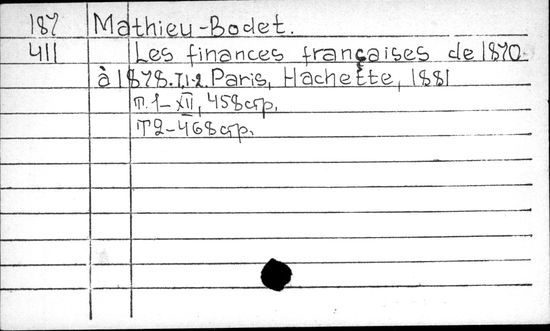 187 Mathieu-Bodet.
411 Les finances françaises de 1870
à 1878. T.1-2. Paris, Hachette, 1881
т. 1 - XII, 458 стр.
т 2 - 468 стр.